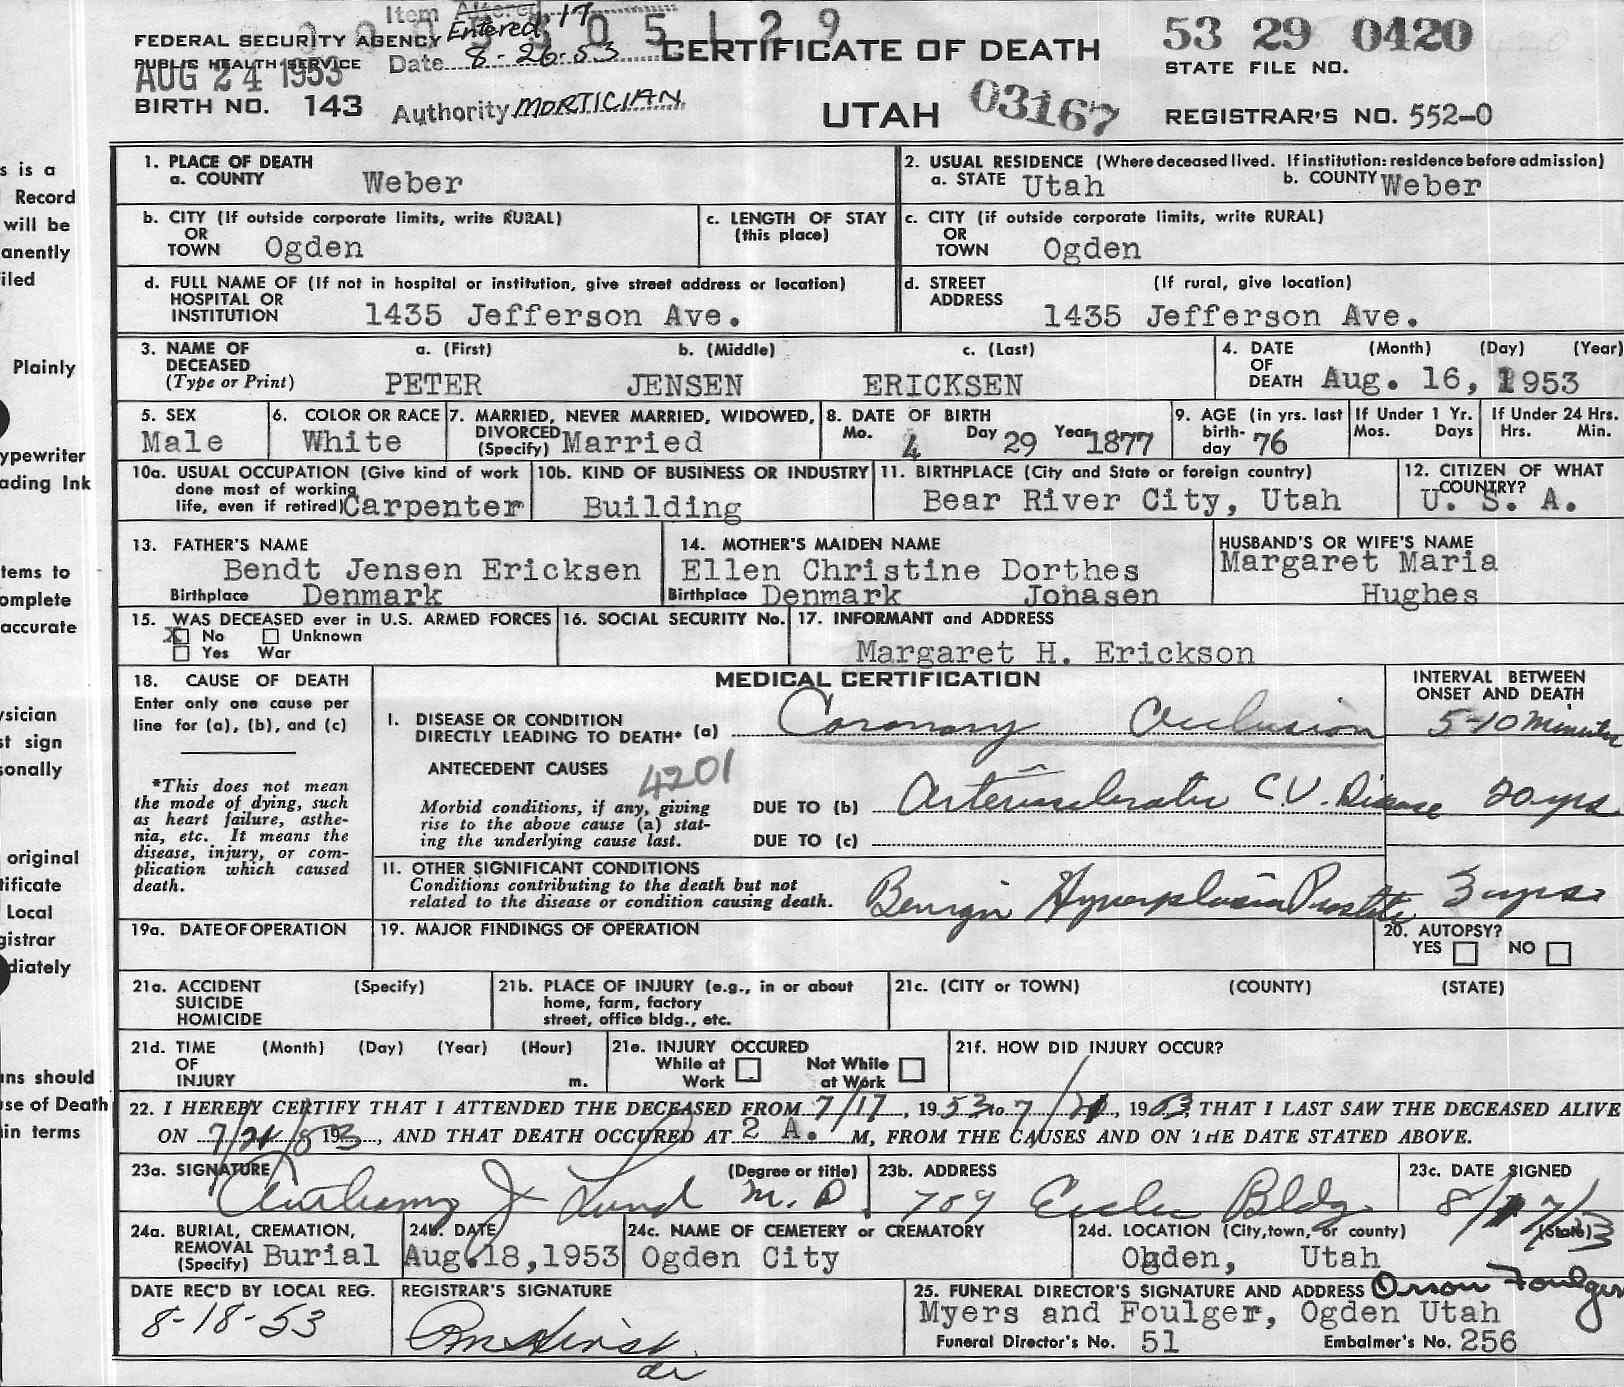 Item Altered 17
Entered
FEDERAL SECURITY AGENCY
PUBLIC HEALTH SERVICE
Date 8-26-53
CERTIFICATE OF DEATH
53 29 0420
STATE FILE NO.
AUG 24 1953
BIRTH NO. 143
Authority MORTICIAN
UTAH 03167
REGISTRAR'S NO. 552-0
s is a
Record
will be
anently
iled
Plainly
ypewriter
ading Ink
tems to
omplete
accurate
ysician
st sign
sonally
original
tificate
Local
gistrar
diately
ans should
se of Death
in terms
1. PLACE OF DEATH
a. COUNTY Weber
2. USUAL RESIDENCE (Where deceased lived. If institution: residence before admission)
a. STATE Utah b. COUNTY Weber
b. CITY (If outside corporate limits, write RURAL)
OR
TOWN Ogden
c. LENGTH OF STAY
(this place)
c. CITY (if outside corporate limits, write RURAL)
OR
TOWN Ogden
d. FULL NAME OF (If not in hospital or institution, give street address or location)
HOSPITAL OR
INSTITUTION 1435 Jefferson Ave.
d. STREET (If rural, give location)
ADDRESS
1435 Jefferson Ave.
3. NAME OF a. (First) b. (Middle) c. (Last)
DECEASED
(Type or Print) PETER JENSEN ERICKSEN
4. DATE (Month) (Day) (Year)
OF
DEATH Aug. 16, 1953
5. SEX
Male
6. COLOR OR RACE
White
7. MARRIED, NEVER MARRIED, WIDOWED,
DIVORCED
(Specify) Married
8. DATE OF BIRTH
Mo. 4 Day 29 Year 1877
9. AGE (in yrs. last
birth-
day 76
If Under 1 Yr.
Mos. Days
If Under 24 Hrs.
Hrs. Min.
10a. USUAL OCCUPATION (Give kind of work
done most of working
life, even if retired) Carpenter
10b. KIND OF BUSINESS OR INDUSTRY
Building
11. BIRTHPLACE (City and State or foreign country)
Bear River City, Utah
12. CITIZEN OF WHAT
COUNTRY?
U. S. A.
13. FATHER'S NAME
Bendt Jensen Ericksen
Birthplace Denmark
14. MOTHER'S MAIDEN NAME
Ellen Christine Dorthes
Birthplace Denmark Johasen
HUSBAND'S OR WIFE'S NAME
Margaret Maria
Hughes
15. WAS DECEASED ever in U.S. ARMED FORCES
X No Unknown
Yes War
16. SOCIAL SECURITY No.
17. INFORMANT and ADDRESS
Margaret H. Erickson
18. CAUSE OF DEATH
Enter only one cause per
line for (a), (b), and (c)
*This does not mean
the mode of dying, such
as heart failure, asthe-
nia, etc. It means the
disease, injury, or com-
plication which caused
death.
MEDICAL CERTIFICATION
INTERVAL BETWEEN
ONSET AND DEATH
I. DISEASE OR CONDITION
DIRECTLY LEADING TO DEATH* (a) Coronary Occlusion 5-10 Minutes
ANTECEDENT CAUSES 4201
Morbid conditions, if any, giving
rise to the above cause (a) stat-
ing the underlying cause last.
DUE TO (b) Arteriosclerotic C.V. Disease 20 yrs
DUE TO (c)
II. OTHER SIGNIFICANT CONDITIONS
Conditions contributing to the death but not
related to the disease or condition causing death.
Benign Hyperplasia Prostate 3 yrs.
19a. DATE OF OPERATION
19. MAJOR FINDINGS OF OPERATION
20. AUTOPSY?
YES NO
21a. ACCIDENT (Specify)
SUICIDE
HOMICIDE
21b. PLACE OF INJURY (e.g., in or about
home, farm, factory
street, office bldg., etc.
21c. (CITY or TOWN) (COUNTY) (STATE)
21d. TIME (Month) (Day) (Year) (Hour)
OF
INJURY m.
21e. INJURY OCCURED
While at Not While
Work at Work
21f. HOW DID INJURY OCCUR?
22. I HEREBY CERTIFY THAT I ATTENDED THE DECEASED FROM 7/17, 1953 to 7/21, 1953, THAT I LAST SAW THE DECEASED ALIVE
ON 7/21, 1953, AND THAT DEATH OCCURED AT 2 A. M, FROM THE CAUSES AND ON THE DATE STATED ABOVE.
23a. SIGNATURE (Degree or title)
Anthony J Lund M.D.
23b. ADDRESS
709 Eccles Bldg
23c. DATE SIGNED
8/17/53
24a. BURIAL, CREMATION,
REMOVAL
(Specify) Burial
24b. DATE
Aug. 18, 1953
24c. NAME OF CEMETERY or CREMATORY
Ogden City
24d. LOCATION (City, town, or county) (State)
Ogden, Utah
DATE REC'D BY LOCAL REG.
8-18-53
REGISTRAR'S SIGNATURE
25. FUNERAL DIRECTOR'S SIGNATURE AND ADDRESS Orson Foulger
Myers and Foulger, Ogden Utah
Funeral Director's No. 51 Embalmer's No. 256